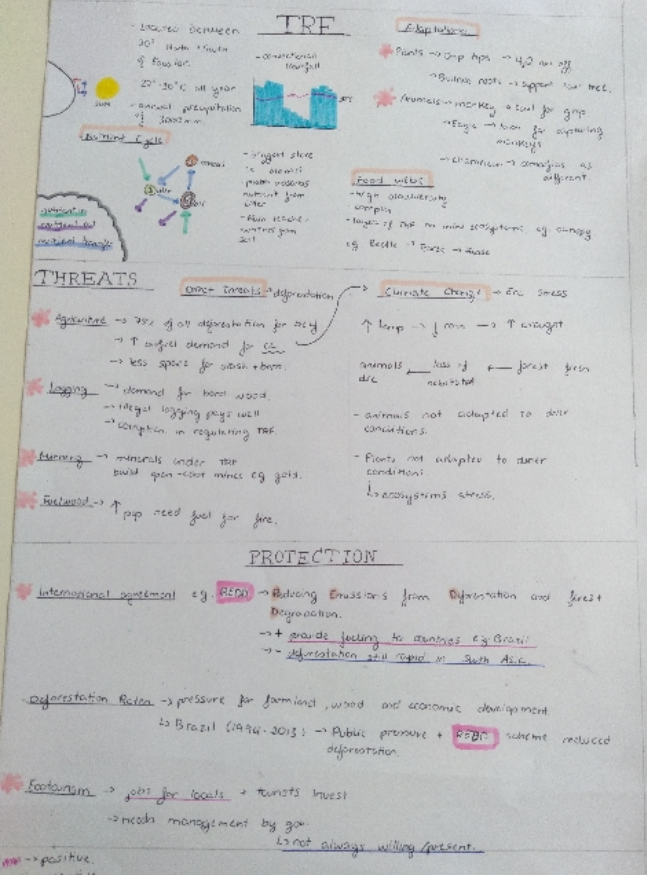 TRF
- Located between
20° North + South
of Equator.
- annual precipitation
of 2000mm.
SUN
Nutrient Cycle
litter
soil
nutrient in
nutrient out
nutrient transfer
- biggest store
is biomass
nutrient from
litter
Adaptations
Plants → Drip tips →
→ Buttress roots → support tall tree.
Animals → monkey → tail for grip
→ Eagle → for capturing
monkeys
→ Chameleon → camoflaus as
different.
Food webs
- high biodiversity
complex
- layers of TRF in mini ecosystems eg canopy
eg Beetle →
THREATS
Direct threats → deforestation
Climate Change → Eco stress
Agriculture → 75% of all deforestation for
→ ↑ demand for
→ less space for slash + burn.
Logging → demand for hard wood.
→ illegal logging pays well
→ corruption in regulating TRF.
Mining → minerals under TRF
build open-cast mines eg gold.
Fuelwood → ↑
pop need fuel for fire.
↑ temp → ↓ rain → ↑ drought
animals
die
← loss of
habitat
← forest
- animals not adapted to drier
conditions.
- Plants not adapted to drier
conditions.
↳ ecosystems stress.
PROTECTION
International agreement eg. REDD → Reducing Emissions from Deforestation and forest
Degradation.
→ + provide funding to countries eg Brazil
→ - deforestation still rapid in South Asia.
Deforestation Rates → pressure for farmland, wood and economic development.
↳ Brazil → Public pressure + REDD scheme reduced
deforestation.
Ecotourism → jobs for locals + tourists invest
→ needs management by gov.
↳ not always willing/present.
→ positive.